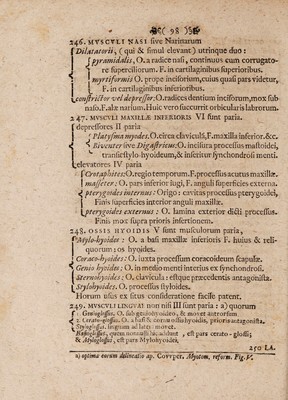 ( 98 )
246. MUSCULI NASI sive Narinarum
Dilatatorii, ( qui & simul elevant ) utrinque duo:
pyramidalis, O. a radice nasi, continuus cum corrugato-
re superciliorum. F. in cartilaginibus superioribus.
myrtiformis O. prope incisorium, cuius quas pars videtur,
F. in cartilaginibus inferioribus.
constrictor vel depressor: O. radices dentium incisorum, mox sub
naso, F. alæ narium. Huic vero succurrit orbicularis labrorum.
247. MUSCULI MAXILLÆ INFERIORIS VI sunt paria.
depressores II paria
Platysma myodes. O. circa clavículs, F. maxilla inferior. &c.
Biventer sive Digastricus: O. incisura processus mastoidei,
transit stylo-hyoideum, & inseritur synchondrosi menti.
elevatores IV paria
Crotaphites: O. regio temporum. F. processus acutus maxillæ
masseter: O. pars inferior jugi, F. anguli superficies externa.
pterygoides internus: Origo: cavitas processus pterygoidei,
Finis superficies interior anguli maxillæ.
pterygoides externus: O. lamina exterior dicti processus.
Finis mox supra prioris insertionem.
248. OSSIS HYOIDIS V sunt musculorum paria,
Mylo-hyoides: O. a basi maxillæ inferioris F. huius & reli-
quorum: os hyoides.
Coraco-hyoides: O. juxta processum coracoideum scapulæ.
Genio hyoides: O. in medio menti interius ex synchondrosi.
Sternohyoides: O. clavicula: estque præcedentis antagonista.
Stylohyoides: O. processus styloides.
Horum usus ex situs consideratione facile patent.
249. MUSCULI LINGUÆ non nisi III sunt paria: a) quorum
1. Genioglossus. O. sub geniohyoideo, & movet antrorsum
2. Cerato-glossus. O. a basi & cornu ossis hyoidis, prioris antagonista.
Styloglossus. lingvam ad latus movet.
Basioglossus, quem nonnulli his addunt, est pars cerato-glossi;
& Myloglossus, est pars Mylohyoides.
250 LA.
a) optima eorum delineatio ap. Covvper. Myotom. reform. Fig. V.